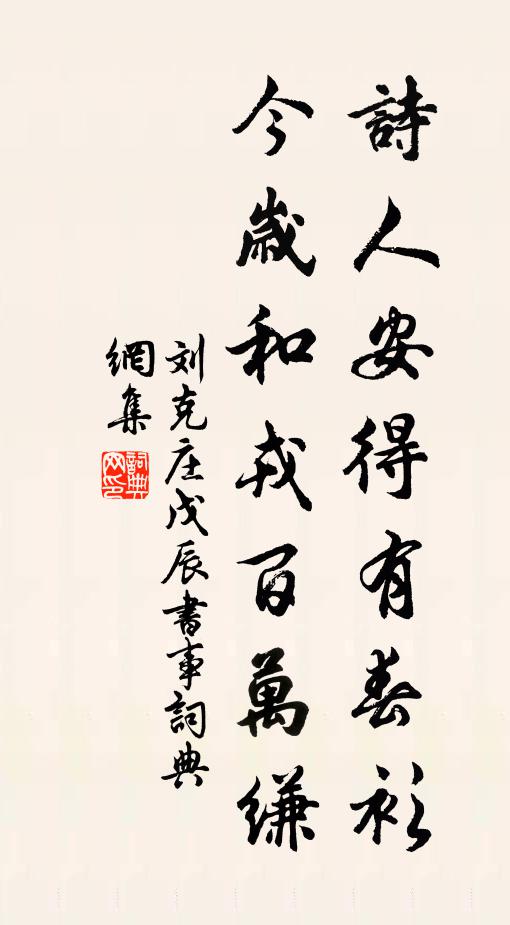 詩人安得有春衫
今歲和戎百萬縑
刘克庄戊辰書事詞典
網集
詞典網印